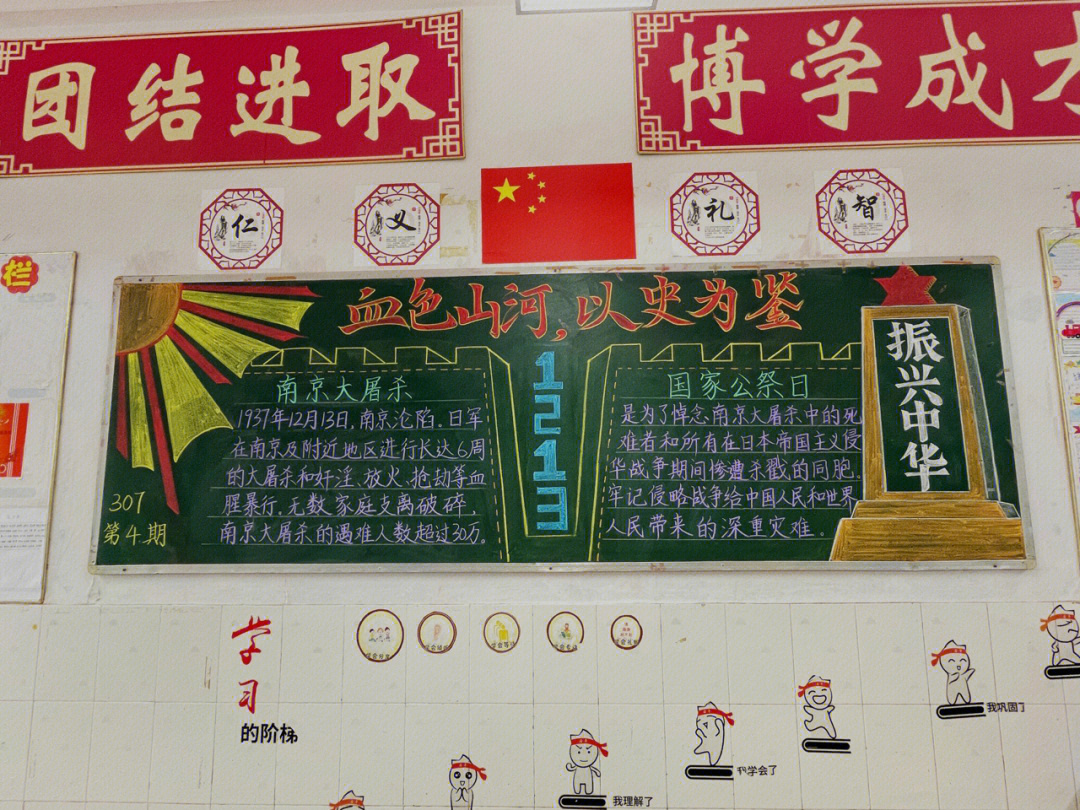 团结进取
博学成才
仁
义
礼
智
栏
血色山河,以史为鉴
南京大屠杀
1937年12月13日,南京沦陷。日军
在南京及附近地区进行长达6周
的大屠杀和奸淫、放火、抢劫等血
腥暴行,无数家庭支离破碎,
南京大屠杀的遇难人数超过30万。
307
第4期
1213
国家公祭日
是为了悼念南京大屠杀中的死
难者和所有在日本帝国主义侵
华战争期间惨遭杀戮的同胞,
牢记侵略战争给中国人民和世界
人民带来的深重灾难。
振兴中华
学习
的阶梯
我巩固了
我学会了
我理解了